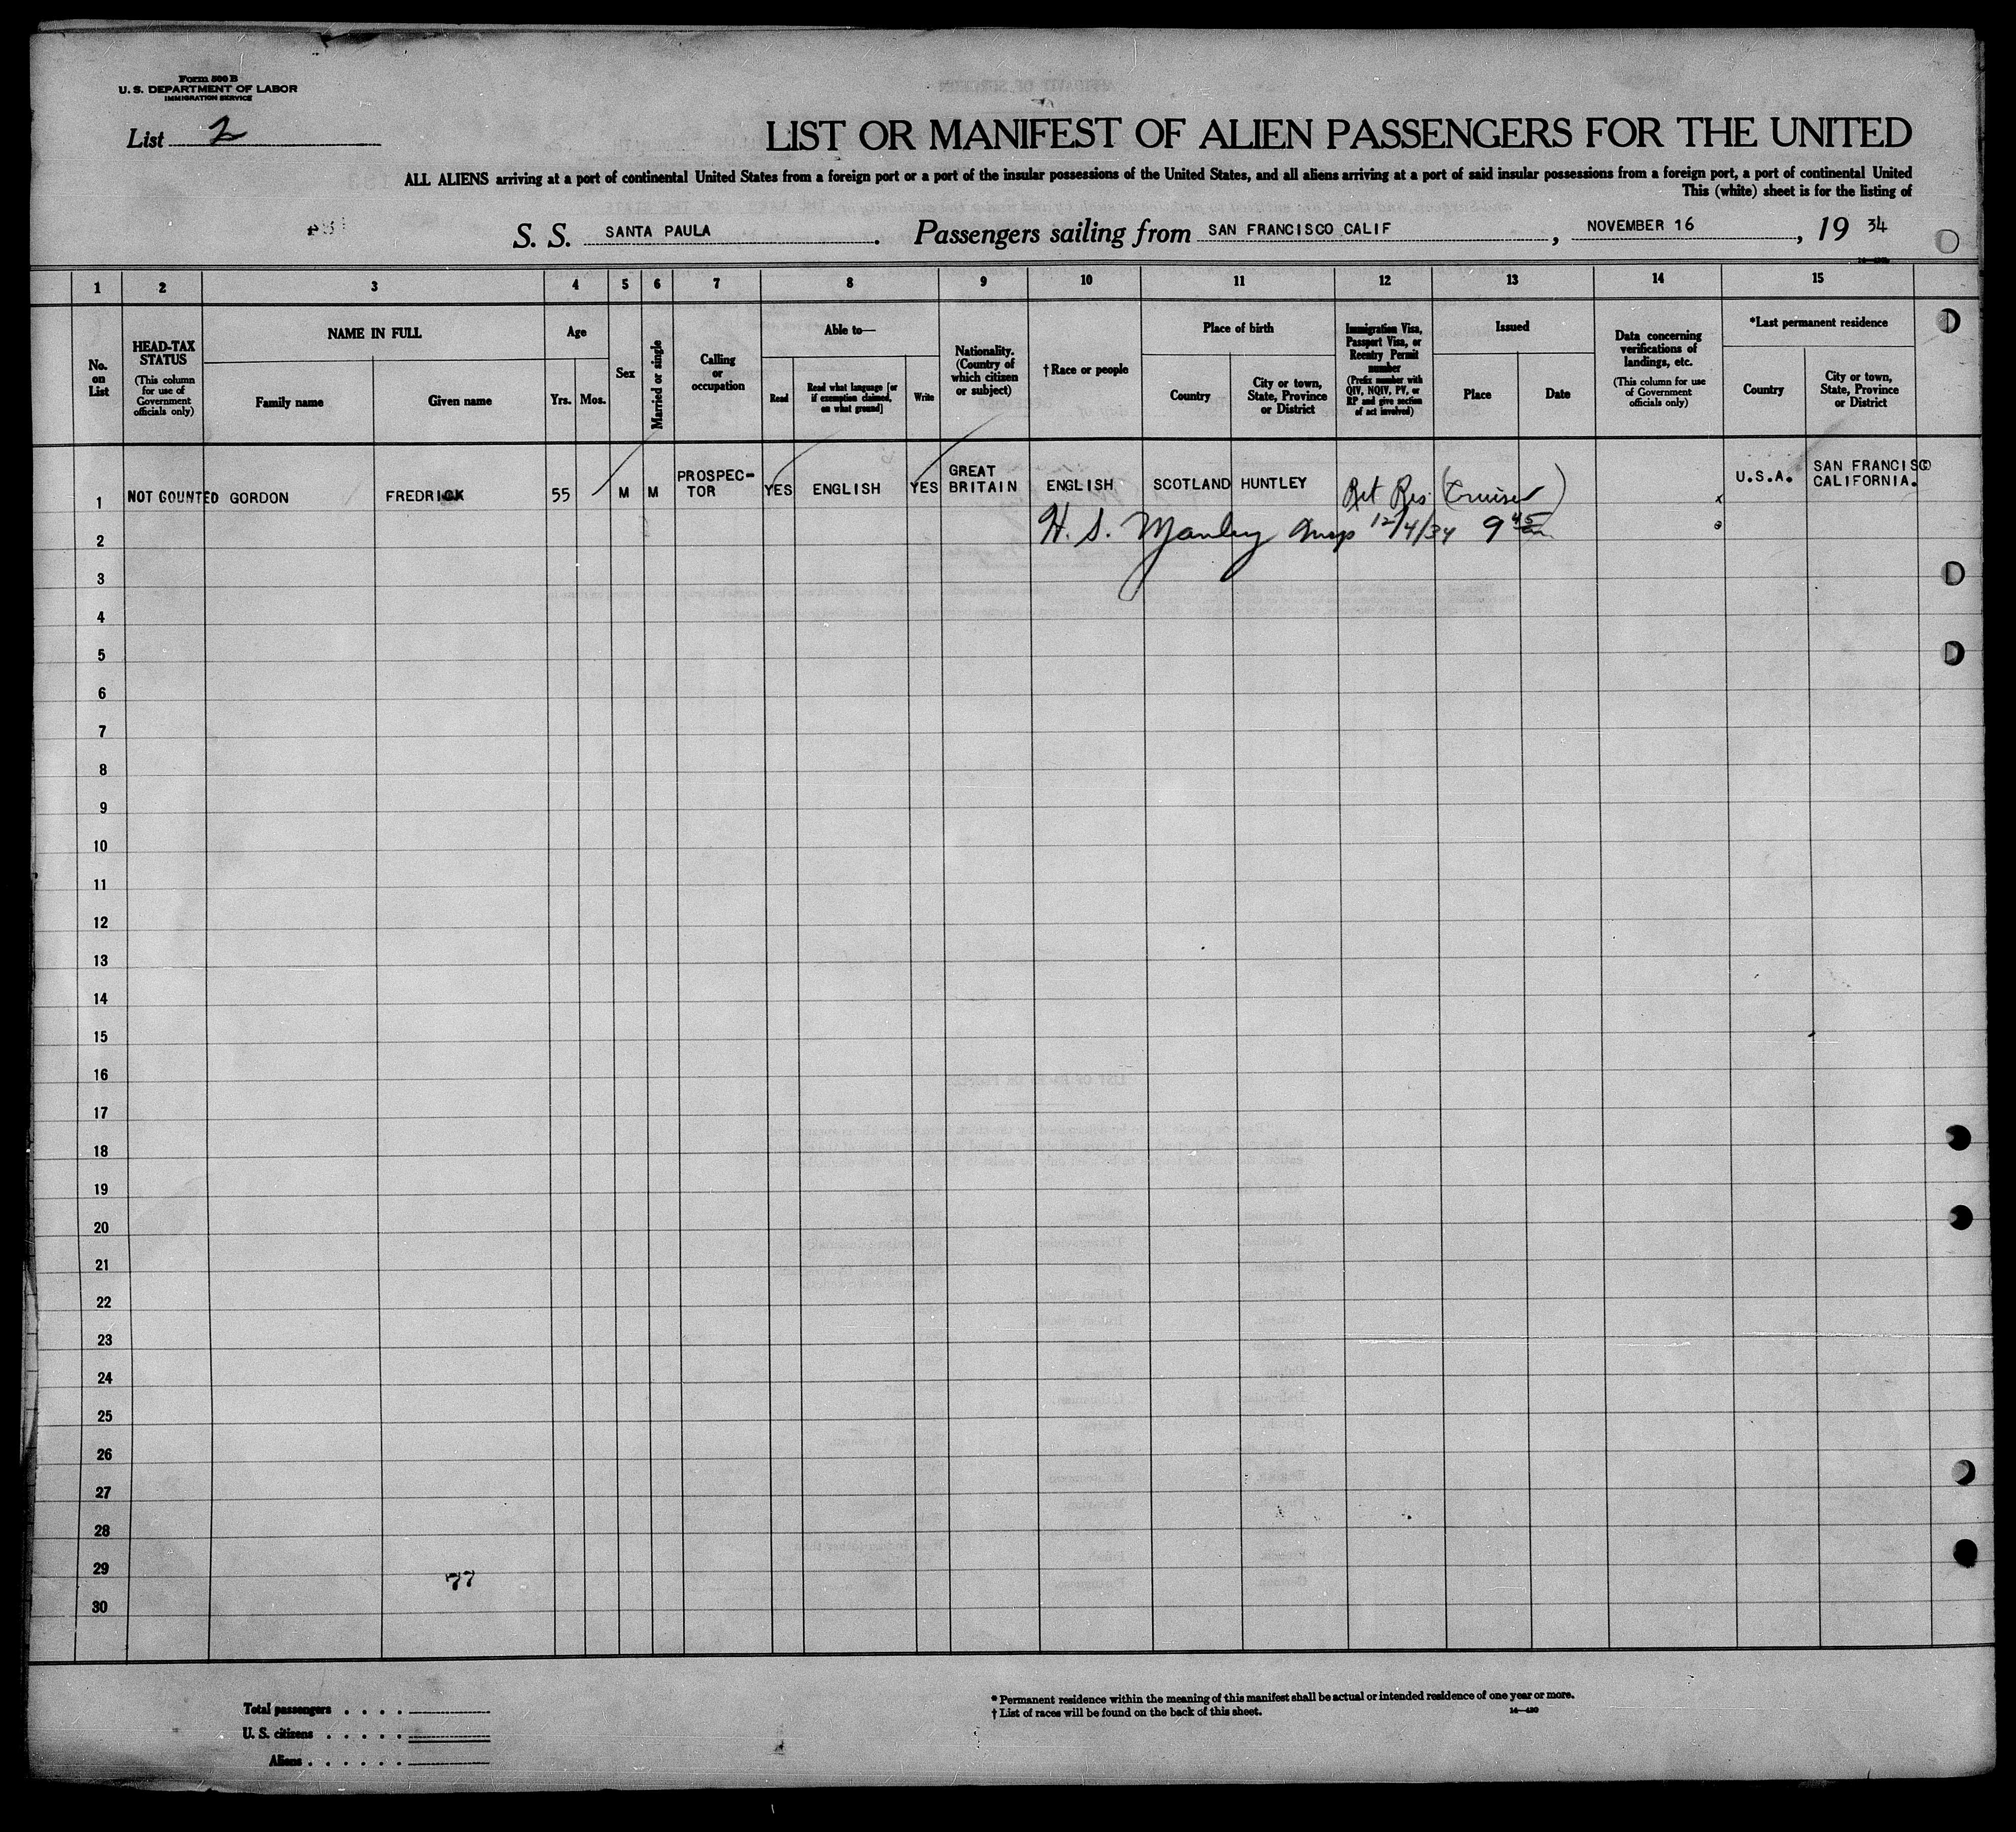 Form 500 B
U. S. DEPARTMENT OF LABOR
IMMIGRATION SERVICE
List 2
LIST OR MANIFEST OF ALIEN PASSENGERS FOR THE UNITED
ALL ALIENS arriving at a port of continental United States from a foreign port or a port of the insular possessions of the United States, and all aliens arriving at a port of said insular possessions from a foreign port, a port of continental United
This (white) sheet is for the listing of
S. S. SANTA PAULA. Passengers sailing from SAN FRANCISCO CALIF, NOVEMBER 16, 19 34
1 2 3 4 5 6 7 8 9 10 11 12 13 14 15
No. on List
HEAD-TAX STATUS
(This column for use of Government officials only)
NAME IN FULL
Family name
Given name
Age
Yrs. Mos.
Sex
Married or single
Calling or occupation
Able to—
Read
Read what language [or if exemption claimed, on what ground]
Write
Nationality. (Country of which citizen or subject)
† Race or people
Place of birth
Country
City or town, State, Province or District
Immigration Visa, Passport Visa, or Reentry Permit number
(Prefix number with QIV, NQIV, PV, or RP and give section of act involved)
Issued
Place
Date
Data concerning verifications of landings, etc.
(This column for use of Government officials only)
*Last permanent residence
Country
City or town, State, Province or District
1 NOT COUNTED GORDON FREDRICK 55 M M PROSPEC-TOR YES ENGLISH YES GREAT BRITAIN ENGLISH SCOTLAND HUNTLEY Ret Res. (Cruiser) x U.S.A. SAN FRANCISCO CALIFORNIA.
2 H. S. Manley Insp 12/4/34 9 45
3
4
5
6
7
8
9
10
11
12
13
14
15
16
17
18
19
20
21
22
23
24
25
26
27
28
29
77
30
Total passengers . . . .
U. S. citizens . . . . .
Aliens . . . . . .
* Permanent residence within the meaning of this manifest shall be actual or intended residence of one year or more.
† List of races will be found on the back of this sheet.
14—430